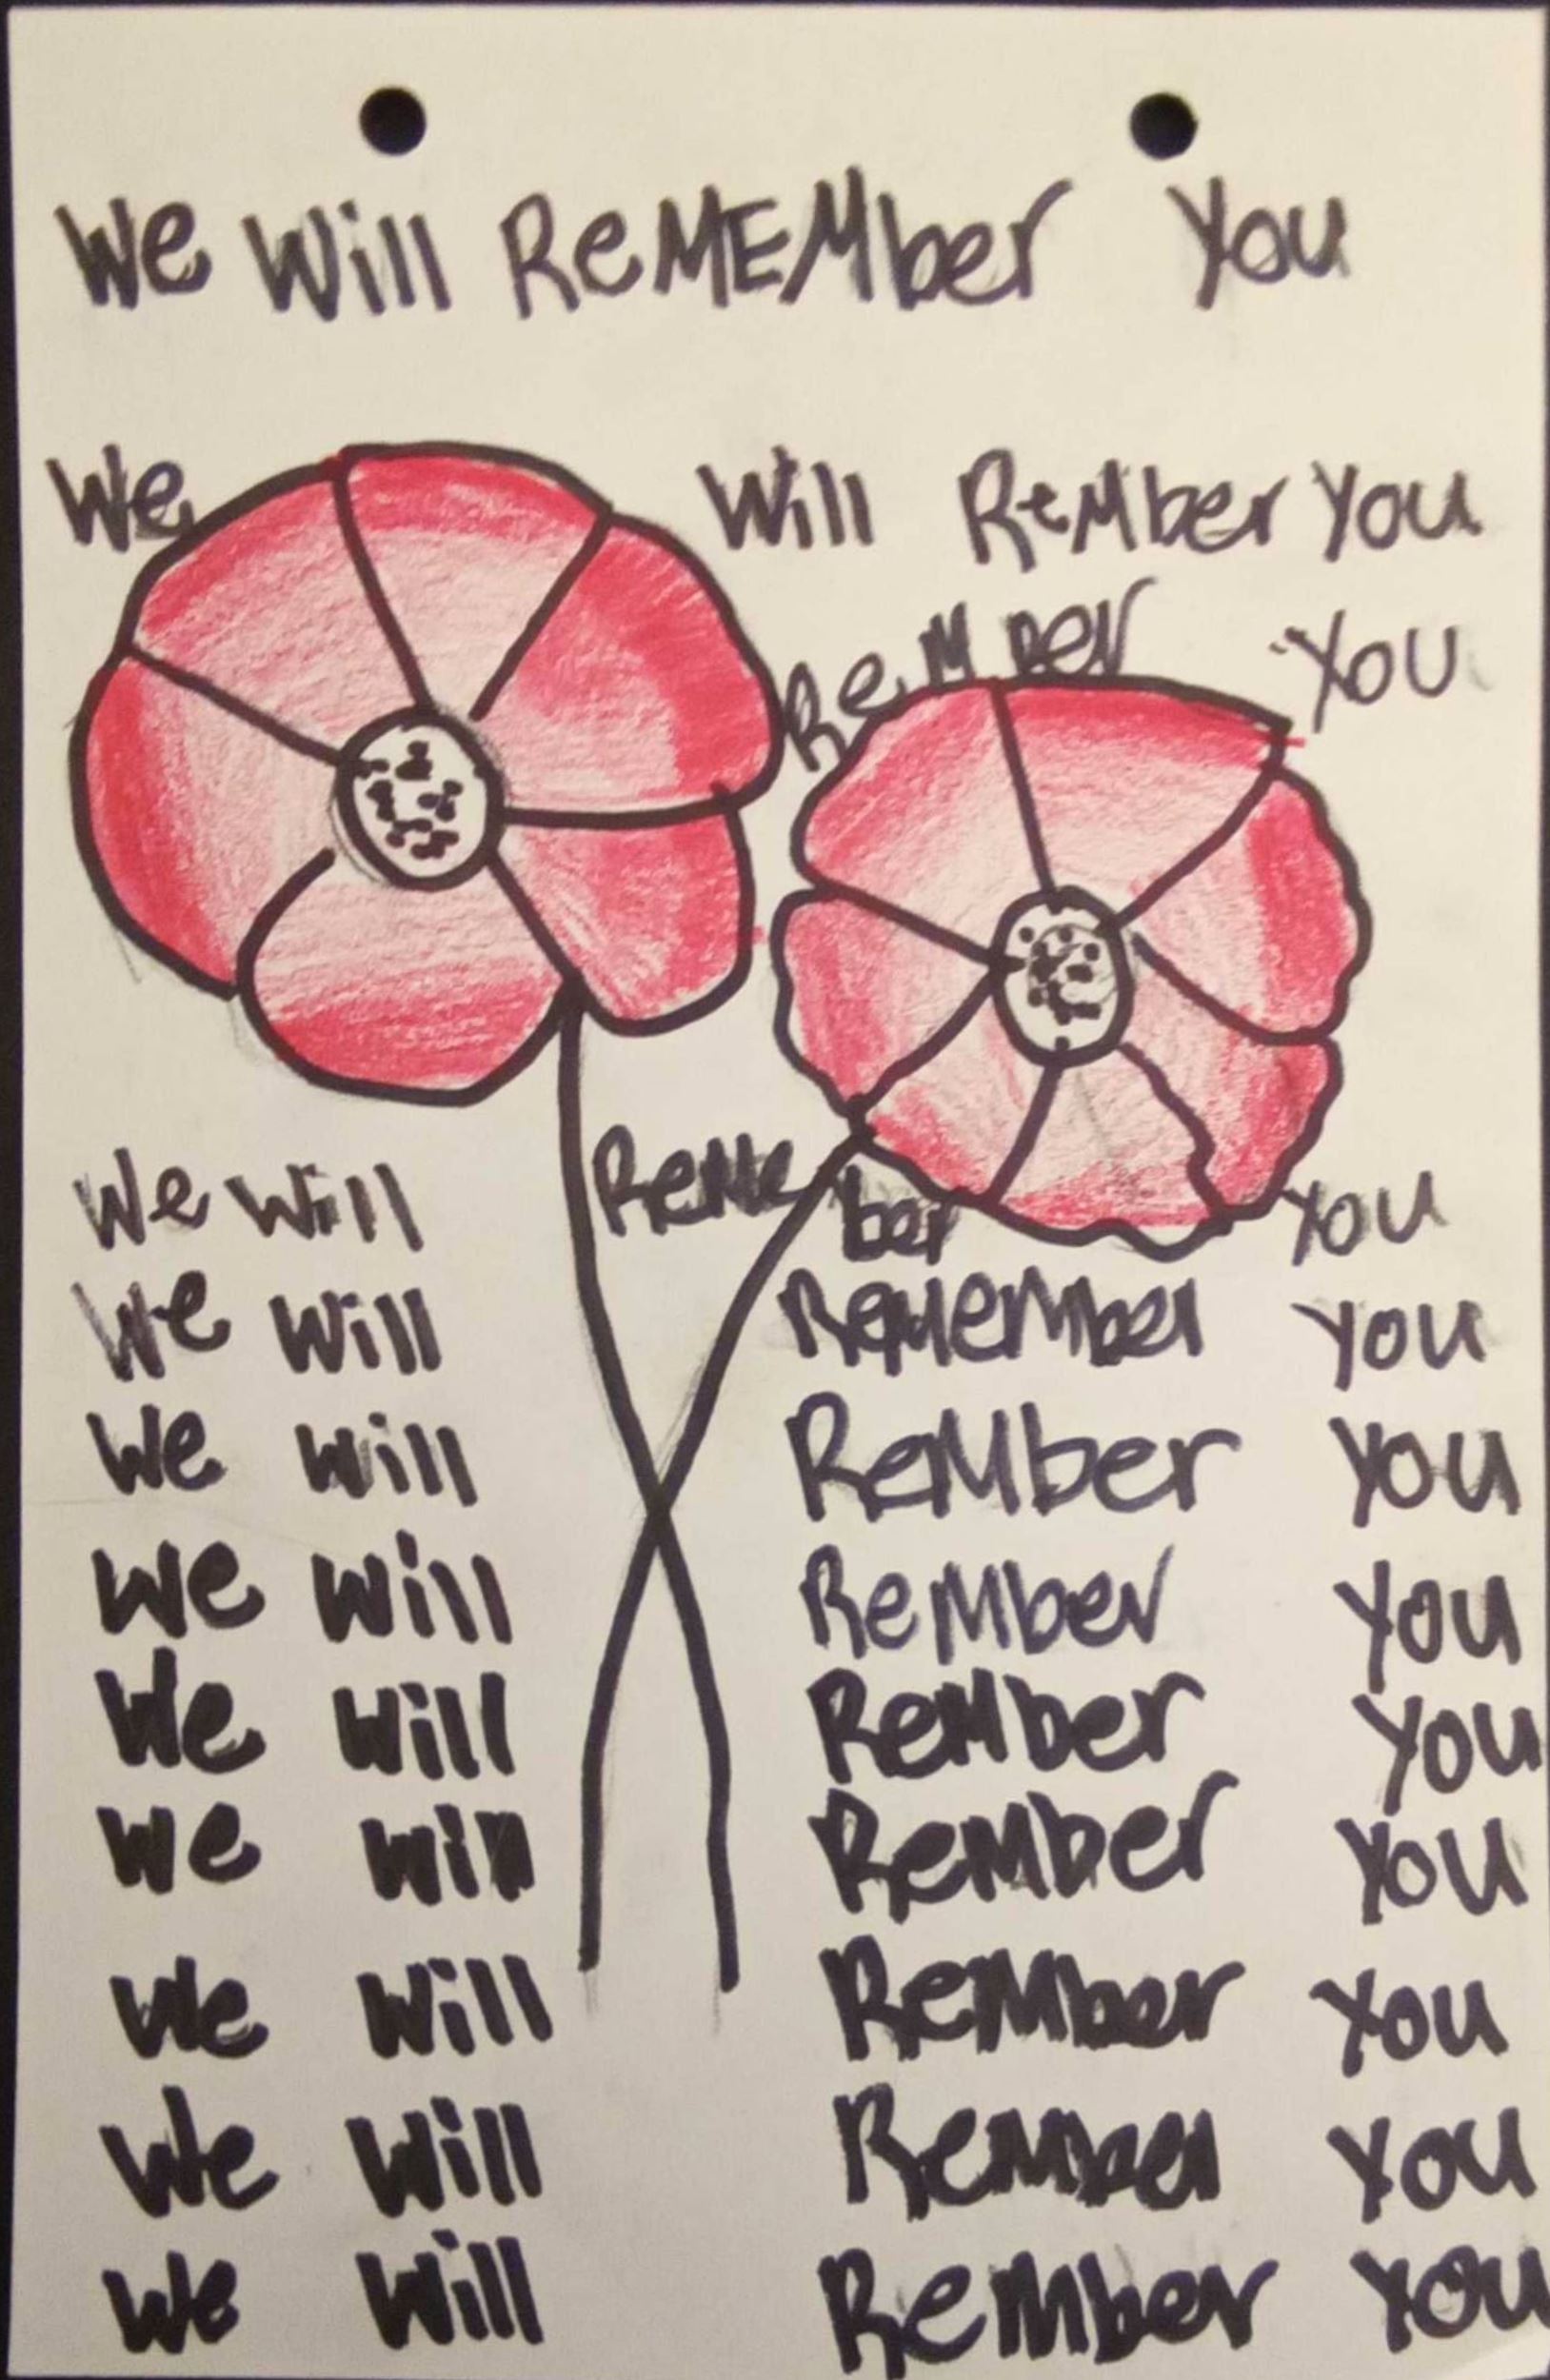 We Will ReMEMber You
We Will ReMber You
ReMber You
We Will Remember You
We Will Remember You
We Will ReMber You
We Will ReMber You
We Will ReMber You
We Will ReMber You
We Will ReMber You
We Will ReMber You
We Will ReMber You